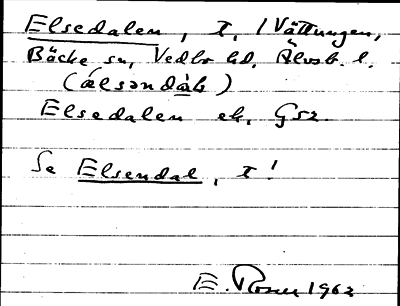 Elsedalen, t, /Vättungen,
Bäcke sn, Vedbo hd. Älvsb. l.
(álsəndàḷ)
Elsedalen ek, G52.
Se Elsendal, t!
E. Rosell 1962